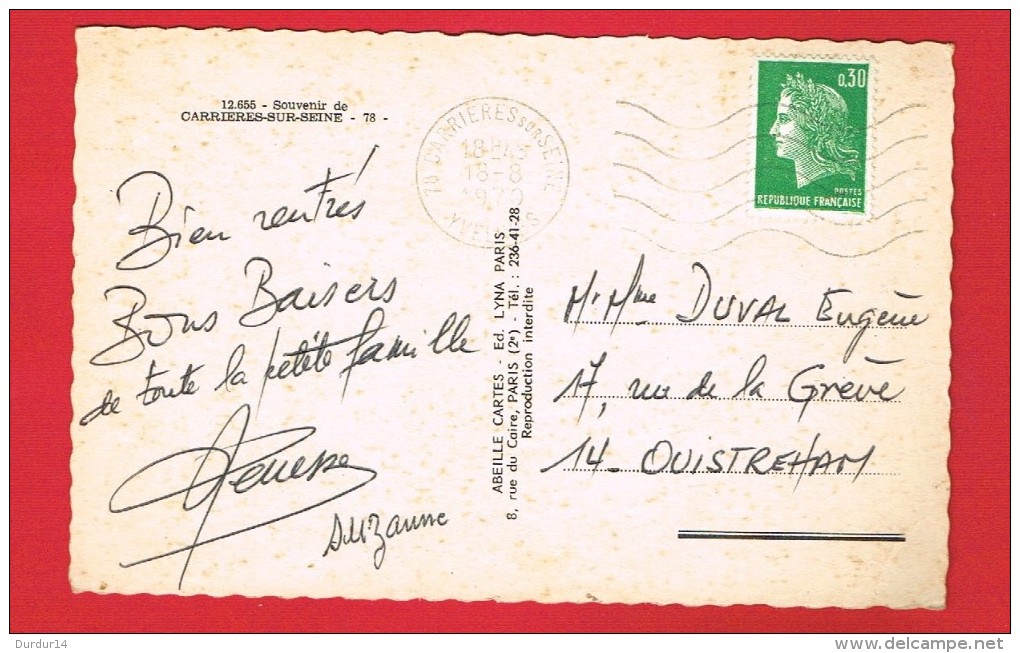 12.655 - Souvenir de
CARRIERES-SUR-SEINE - 78 -
Bien rentrés
Bons Baisers
de toute la petite famille
Suzanne
ABEILLE CARTES - Ed. LYNA PARIS
8, rue du Caire, PARIS (2e) - Tél. : 236-41-28
Reproduction interdite
78 CARRIERES SUR SEINE
18H45
18-8
1970
YVELINES
0,30
POSTES
REPUBLIQUE FRANÇAISE
Mr Mme DUVAL Eugène
17, rue de la Grève
14 - OUISTREHAM
Durdur14
www.delcampe.net